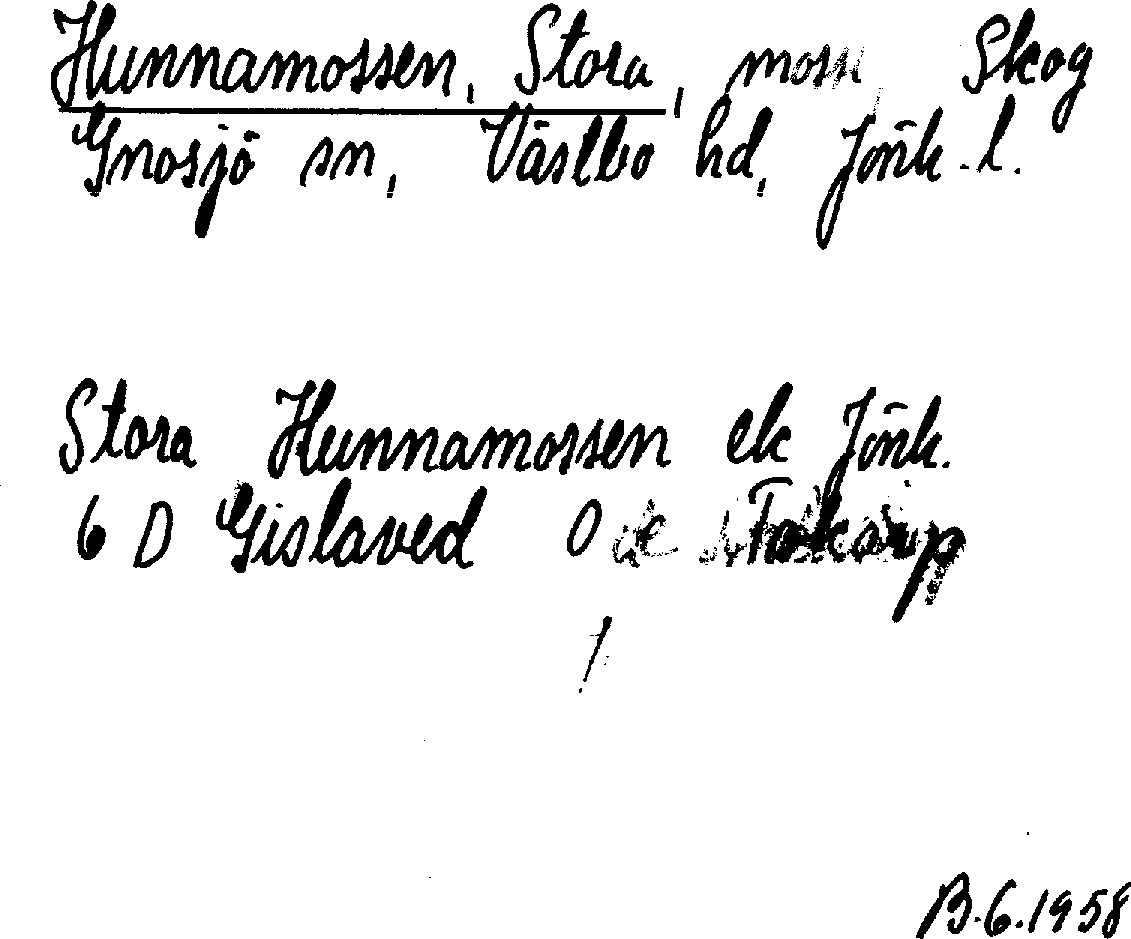 Hunnamossen, Stora, mosse Skog
Gnosjö sn, Västbo hd, Jönk. l.
Stora Hunnamossen ek Jönk.
6 D Gislaved O
B.6.1958